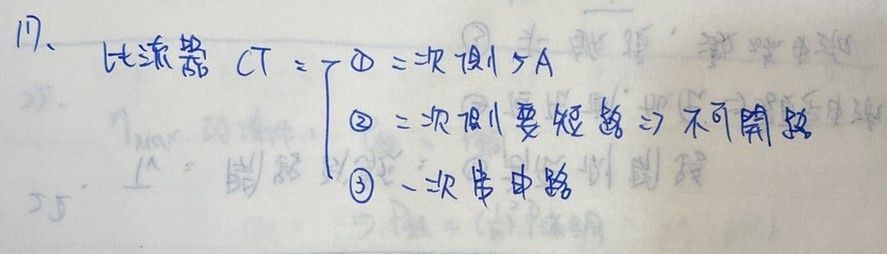 17、比流器 CT = ① 二次側 5A
② 二次側要短路 => 不可開路
③ 一次串電路